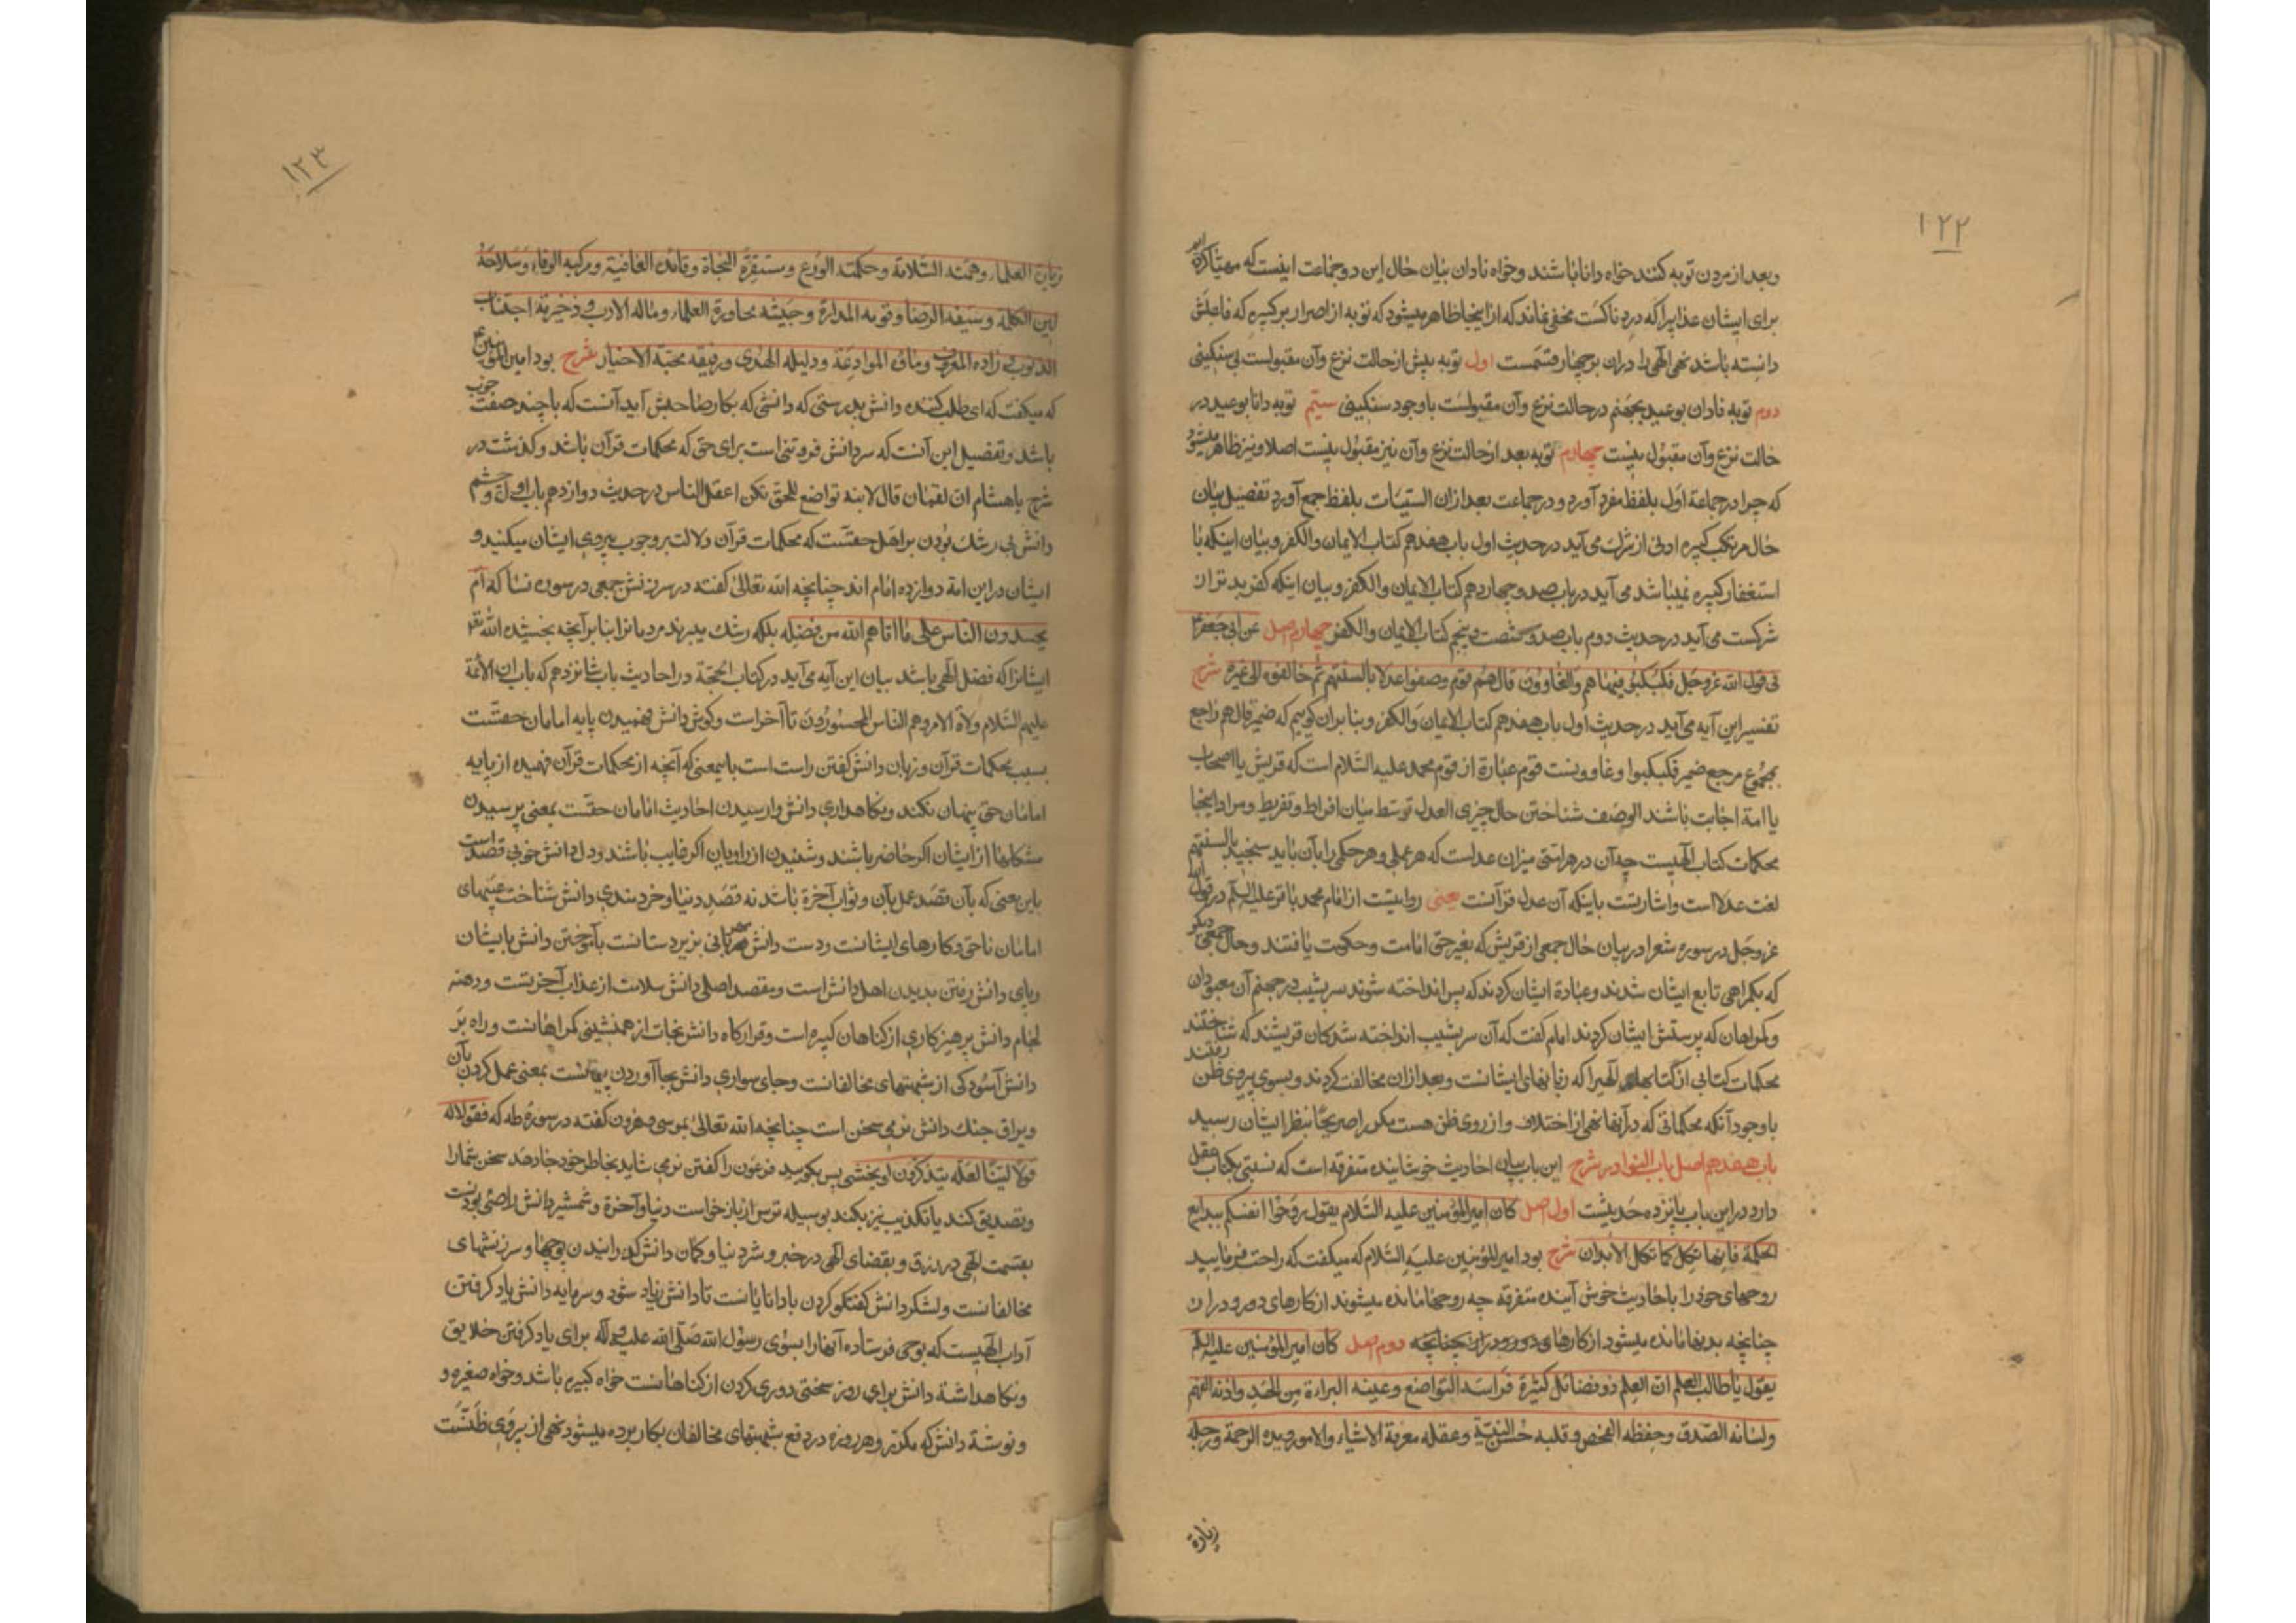 ۱۲۲
وبعد از مردن توبه کنند خواه دانا باشند وخواه نادان بیان حال این دو جماعت اینست که مهیّا کرده ایم
برای ایشان عذابی را که دردناکست مخفی نماند که از اینجا ظاهر میشود که توبه از اصرار بر کبیره که فاعلش
دانسته باشد نهی الٓهی را دران بر چهار قسمست اول توبه پیش از حالت نزع وآن مقبولست بی سنکینی
دوم توبه نادان بوعید بجهنم در حالت نزع وآن مقبولست با وجود سنکینی سیّم توبه دانا بوعید در
حالت نزع وآن مقبول نیست چهارم توبه بعد از حالت نزع وآن نیز مقبول نیست اصلا ونیز ظاهر میشود
که چرا در جماعة اول بلفظ مفرد آورد و در جماعت بعد ازان السیّئات بلفظ جمع آورد تفصیل بیان
حال مرتکب کبیره ادنی از شرک می آید در حدیث اول باب هفدهم کتاب الایمان والکفر وبیان اینکه با
استغفار کبیره نمیباشد می آید در باب صد و چهاردهم کتاب الایمان والکفر وبیان اینکه کفر بدتر از
شرکست می آید در حدیث دوم باب صد و شصت و پنجم کتاب الایمان والکفر چهارم اصل عن ابی جعفر ع
فی قول الله عز وجل فکبکبوا فیها هم والغاوون قال هم قوم وصفوا عدلا بالسنتهم ثم خالفوه الی غیره شرح
تفسیر این آیه می آید در حدیث اول باب هفدهم کتاب الایمان والکفر وبنا بران کوییم که ضمیر قال هم راجع
بمجموع مرجع ضمیر فکبکبوا وغاوونست قوم عبارة از قوم محمد علیه السّلام است که قریش یا اصحاب
یا امة اجابت باشد الوصف شناختن حال چیزی العدل توسط میان افراط وتفریط ومراد اینجا
محکمات کتاب الٓهیست چه آن در راستی میزان عدلست که هر عملی وهر حکمی را بآن باید سنجید بالسنتهم
لغت عدلا است واشارتست باینکه آن عدل قرآنست یعنی روایتست از امام محمد باقر علیه السلام در قول الله
عز وجل در سوره شعرا در بیان حال جمعی از قریش که بغیر حق امامت وحکومت یافتند وحال جمعی دیکر
که بکمراهی تابع ایشان شدند وعبادة ایشان کردند که پس انداخته شوند سر بشیب در جهنم آن معبودان
وکمراهان که پرستش ایشان کردند امام کفت که آن سر بشیب انداخته شدکان قریشند که شناختند
محکمات کتابی از کتابهای الهی را که زبانهای ایشانست وبعد ازان مخالفت کردند وبسوی پیروی ظن رفتند
با وجود آنکه محکماتی که در آنها نهی از اختلاف و از روی ظن هست مکرر صریحا بنظر ایشان رسید
باب هفدهم اصل باب النوادر شرح این باب بیان احادیث خوشاینده متفرقه است که نسبتی بکتاب عقل
دارد در این باب پانزده حدیثست اول اصل کان امیر المؤمنین علیه السّلام یقول روّحوا انفسکم ببدایع
الحکمة فانها تکل کما تکل الابدان شرح بود امیر المؤمنین علیه السّلام که میکفت که راحت فرمایید
روحهای خود را باحادیث خوش آینده متفرقه چه روحها مانده میشوند از کارهای دور ودراز
چنانچه بدنها مانده میشود از کارهای دور ودراز چنانچه دوم اصل کان امیر المؤمنین علیه السلام
یقول یا طالب العلم انّ العلم ذو فضائل کثیرة فراسه التواضع وعینه البراءة من الحسد واذنه الفهم
ولسانه الصّدق وحفظه الفحص وقلبه حسن النیّة وعقله معرفة الاشیاء والامور ویده الرحمة ورجله
زیارة
۱۲۳
زیارة العلماء وهمّته السّلامة وحکمته الورع ومستقرّه النجاة وقائده العافیة ومرکبه الوفاء وسلاحه
لین الکلمة وسیفه الرضا وقوسه المداراة وجیشه محاورة العلماء وماله الادب وذخیرته اجتناب
الذنوب وزاده المعروف وماؤه الموادعة ودلیله الهدی ورفیقه محبّة الاخیار شرح بود امیر المؤمنین ع
که میکفت که ای طلب کننده دانش بدرستی که دانشی که بکار صاحبش آید آنست که با چند صفت خوب
باشد وتفصیل این آنست که سر دانش فروتنی است برای حق که محکمات قرآن باشد وکذشت در
شرح یا هشام ان لقمان قال لابنه تواضع للحق تکن اعقل الناس در حدیث دوازدهم باب اول وچشم
دانش بی رشک بودن بر اهل حقست که محکمات قرآن دلالت بر وجوب پیروی ایشان میکنند و
ایشان در این امة دوازده امام اند چنانچه الله تعالی کفته در سرزنش جمعی در سوره نسا که ام
یحسدون الناس علی ما اتاهم الله من فضله بلکه رشک میبرند مردمانرا بنا بر آنچه بخشیده الله تعالی
ایشانرا که فضل الٓهی باشد بیان این آیه می آید در کتاب الحجّة در احادیث باب شانزدهم که باب ان الائمة
علیهم السّلام ولاة الامر وهم الناس المحسودون تا آخر است وکوش دانش فهمیدن پایه امامان حقست
بسبب محکمات قرآن وزبان دانش کفتن راست است باینمعنی که آنچه از محکمات قرآن فهمیده از پایه
امامان حق پنهان نکند ونکاهداری دانش وارسیدن احادیث امامان حقّست بمعنی پرسیدن
مشکلها از ایشان اکر حاضر باشند وشنیدن از راویان اکر غایب باشند ودل دانش خوبی قصد است
باین معنی که بآن قصد عمل بآن وثواب آخرة باشد نه قصد دنیا وخردمندی دانش شناخت عیبهای
امامان ناحق وکارهای ایشانست ودست دانش مهربانی بزیردستانست بآموختن دانش بایشان
وپای دانش رفتن بدیدن اهل دانش است ومقصد اصلی دانش سلامت از عذاب آخرتست ودهنه
لجام دانش پرهیزکاری از کناهان کبیره است وقرارکاه دانش نجات از همنشینی کمراهانست وراه بر
دانش آسودکی از شبهتهای مخالفانست وجای سواری دانش بجا آوردن پیمانست بمعنی عمل کردن بآن
ویراق جنک دانش نرمی سخن است چنانچه الله تعالی بموسی وهرون کفته در سورۀ طه که فقولا له
قولا لینا لعله یتذکر او یخشی پس بکویید فرعون را کفتن نرمی شاید بخاطر خود جا دهد سخن شما را
وتصدیق کند یا تکذیب نیز نکند بوسیله ترس از بازخواست دنیا وآخرة وشمشیر دانش راضی بودنست
بقسمت الٓهی در رزق وبقضای الٓهی در خیر وشر دنیا وکمان دانش کذرانیدن پوچها وسرزنشهای
مخالفانست ولشکر دانش کفتکو کردن با دانایانست تا دانش زیاد شود وسرمایه دانش یاد کرفتن
آداب الٓهیست که بوحی فرستاده آنها را بسوی رسول الله صلّی الله علیه وآله برای یاد کرفتن خلایق
ونکاهداشتۀ دانش برای روز سختی دوری کردن از کناهانست خواه کبیره باشد وخواه صغیره و
وتوشۀ دانش که مکرّر وهر روزه در دفع شبهتهای مخالفان بکار برده میشود نهی از پیروی ظنّست